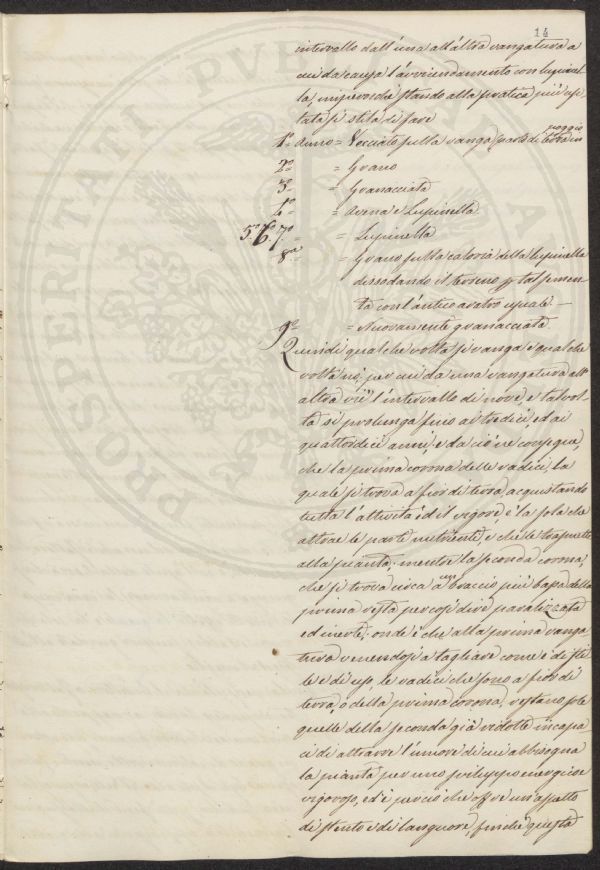 14
intervallo dall'una all'altra vangatura a
cui da causa l'avvicendamento con lupinel-
la, imperocchè stando alla pratica più usi-
tata si stila di fare
1º Anno = Vecciato sulla vanga parte di terra in poggio
2º = Grano
3º = Granacciata
4º = Avena e Lupinella
5º 6º 7º = Lupinella
8º = Grano sulla caloria della lupinella
dissodando il terreno p tal semen-
ta con l'antico aratro usuale —
9º = Nuovamente granacciata
Quindi qualche volta si vanga e qualche
volta nò; per cui da una vangatura all'
altra vi è l'intervallo di nove, e talvol-
ta si prolunga fino ai tredici, ed ai
quattordici anni, e da ciò ne consegue,
che la prima corona delle radici, la
quale si trova a fior di terra, acquistando
tutta l'attività ed il vigore, è la sola che
attrae le parti nutriente, e che le trasmette
alla pianta; mentre la seconda corona,
che si trova circa a un braccio più bassa della
prima resta per così dire paralizzata
ed inerte: onde è che alla prima vanga-
tura venendosi a tagliare come è di sti-
le e di uso, le radici che sono a fior di
terra, o della prima corona, restano sole
quelle della seconda già ridotte incapa-
ci di attrarre l'umore di cui abbisogna
la pianta per uno sviluppo energico e
vigoroso, ed è perciò che offre un aspetto
di stento e di languore, finchè questa
PROSPERITATI PVBLICAE